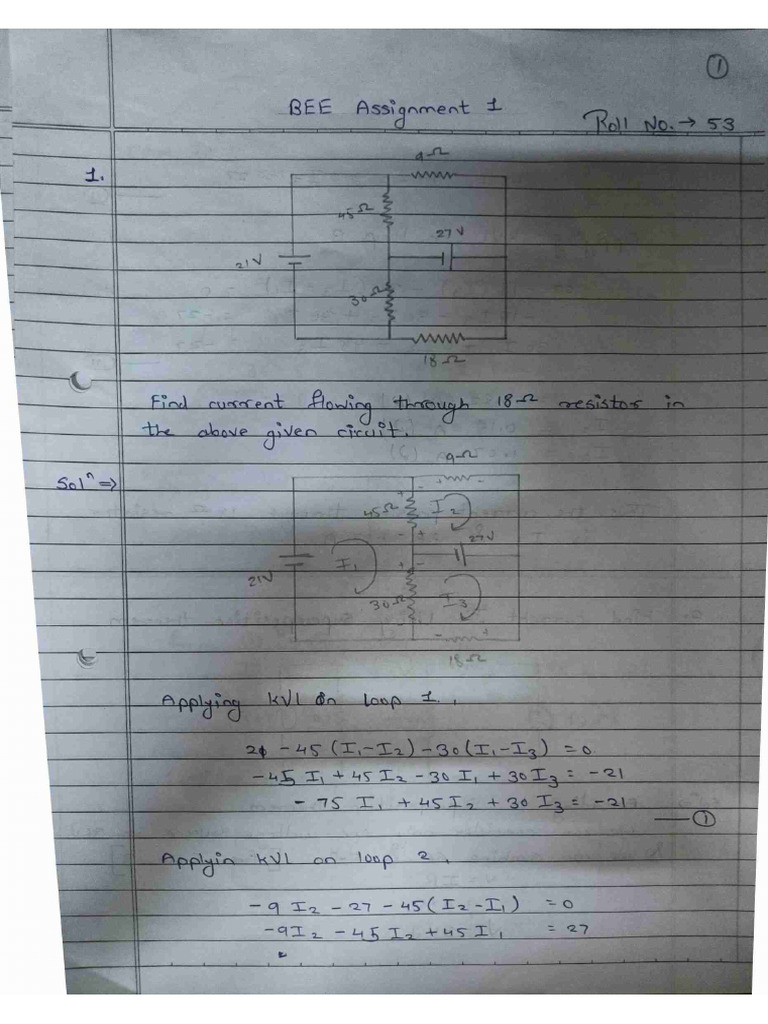 1
BEE Assignment 1
Roll No. → 53
1.
9Ω
45Ω
27V
21V
30Ω
18Ω
Find current flowing through 18Ω resistor in
the above given circuit.
Solⁿ ⇒
9Ω
+ -
45Ω
+ -
I₂
- +
27V
21V
I₁
+ -
30Ω
I₃
- +
18Ω
Applying KVl on loop 1.,
21 - 45 (I₁-I₂) - 30(I₁-I₃) = 0
-45 I₁ + 45 I₂ - 30 I₁ + 30 I₃ = -21
- 75 I₁ + 45 I₂ + 30 I₃ = -21
— 1
Applyin KVl on loop 2,
-9 I₂ - 27 - 45(I₂-I₁) = 0
-9I₂ - 45 I₂ + 45 I₁ = 27